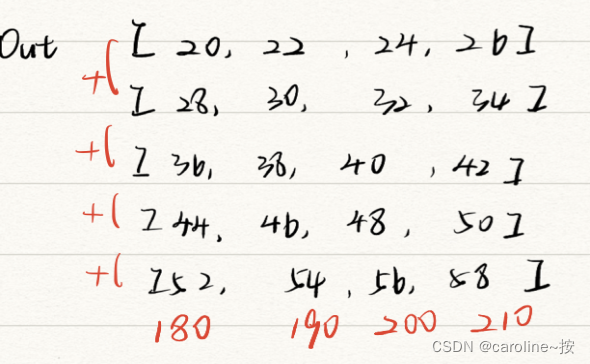 Out [ 20, 22 , 24, 26 ]
+( [ 28, 30, 32, 34 ]
+( [ 36, 38, 40 , 42 ]
+( [ 44, 46, 48 , 50 ]
+( [ 52, 54 , 56, 58 ]
180 190 200 210
CSDN @caroline~按